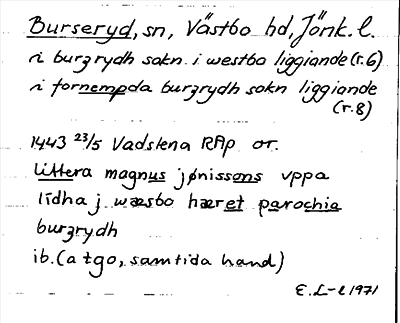 Burseryd, sn, Västbo hd, Jönk. l.
i burzrydh sokn i westbo liggiande (r.6)
i fornempda burzrydh sokn liggiande
(r.8)
1443 23/5 Vadstena RAp or.
littera magnus jønissons vppa
lidha j wæsbo hæret parochia
burzrydh
ib. (a tgo, samtida hand)
E. L-l 1971